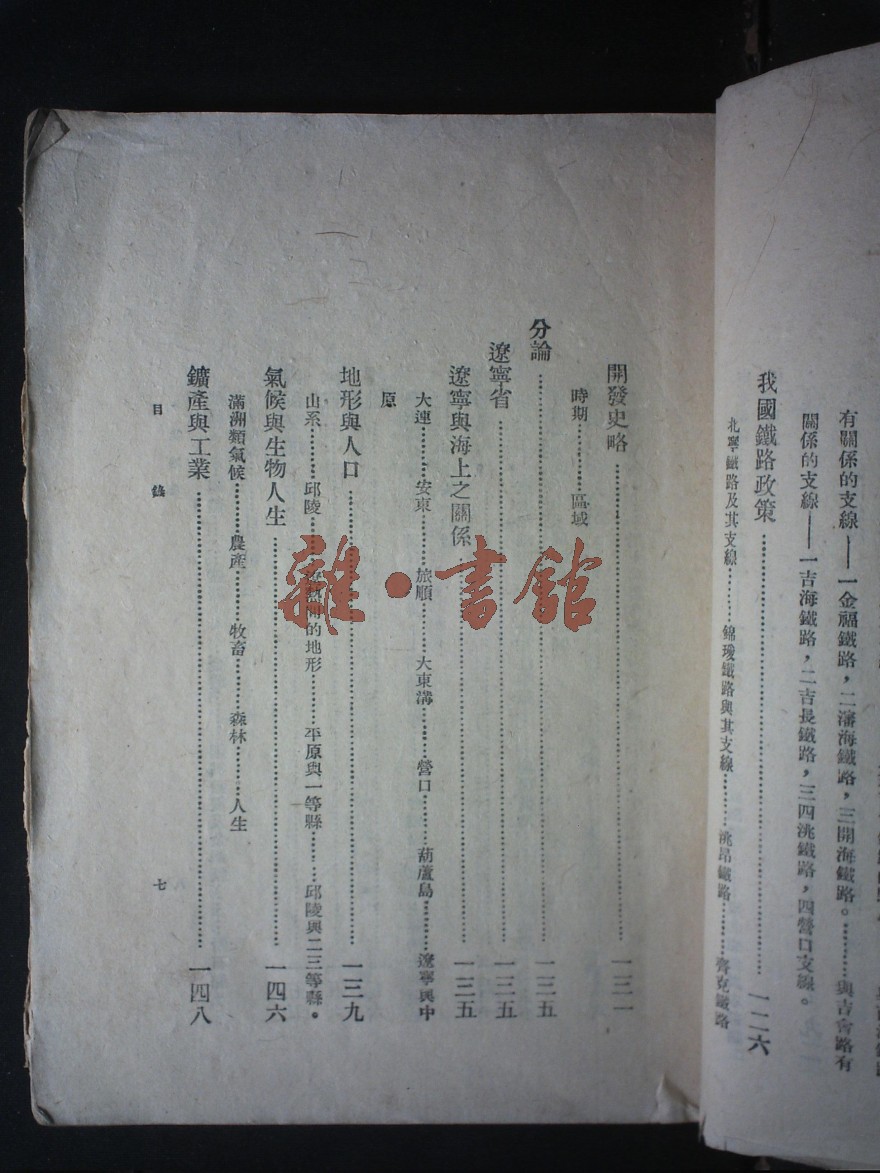 有關係的支線——一金福鐵路，二瀋海鐵路，三開海鐵路。………與吉會路有
關係的支線——一吉海鐵路，二吉長鐵路，三四洮鐵路，四營口支線。
我國鐵路政策…………一二六
北寧鐵路及其支線………錦璦鐵路與其支線………洮昂鐵路………齊克鐵路
開發史略…………一三一
時期………區域
分論…………一三五
遼寧省…………一三五
遼寧與海上之關係…………一三五
大連………安東………旅順………大東溝………營口………葫蘆島………遼寧與中
原
地形與人口…………一三九
山系………邱陵………間的地形………平原與一等縣………邱陵與二三等縣。
氣候與生物人生…………一四六
滿洲類氣候………農產………牧畜………森林………人生
鑛產與工業…………一四八
目錄
七
雜·書館